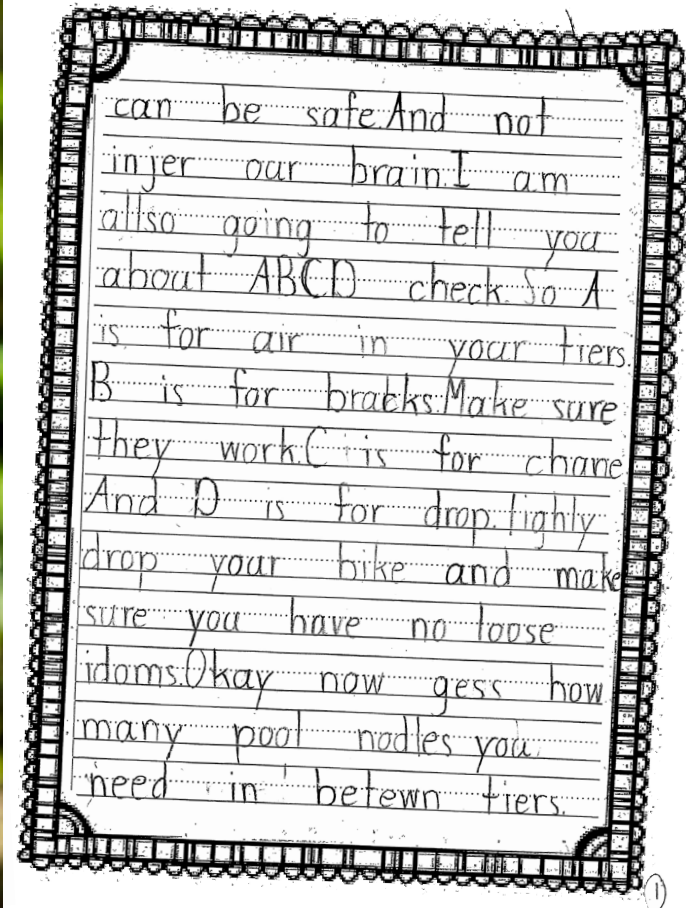 can be safe. And not
injer our brain. I am
allso going to tell you
about ABCD check. So A
is for air in your tiers.
B is for bracks. Make sure
they work. C is for chane
And D is for drop. lighly
drop your bike and make
sure you have no loose
idoms. Okay now gess how
many pool nodles you
need in betewn tiers.
1